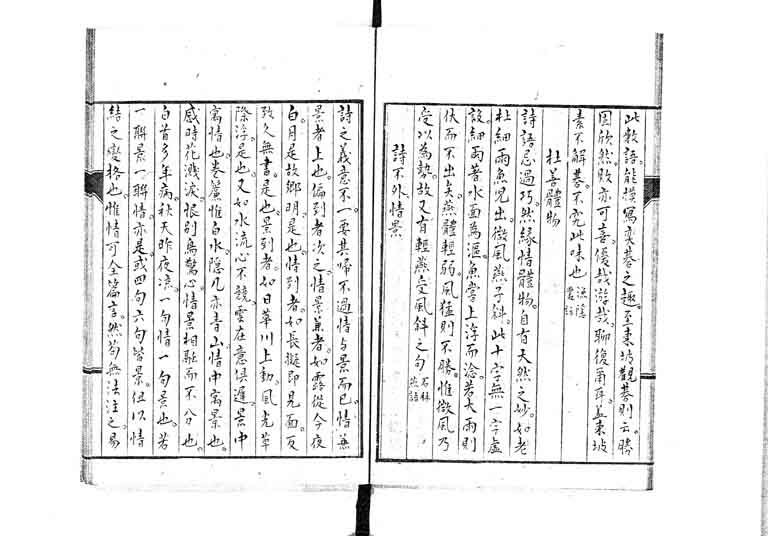 此数語能摸寫奕碁之趣至東坡觀碁則云勝
固欣然敗亦可喜優哉游哉聊復爾耳蓋東坡
素不解碁不究此味也 漁隱叢話
杜善體物
詩語忌過巧然緣情體物自有天然之妙如老
杜細雨魚兒出微風燕子斜此十字無一字虛
設細雨著水面為漚魚常上浮而淰若大雨則
伏而不出矣燕體輕弱風猛則不勝惟微風乃
受以為勢故又有輕燕受風斜之句 石林燕語
詩不外情景
詩之義意不一要其歸不過情与景而已情兼
景者上也偏到者次之情景兼者如露從今夜
白月是故鄉明是也情到者如長擬即見面反
致久無書是也景到者如日華川上動風光草
際浮是也又如水流心不競雲在意俱遲景中
寓情也卷簾惟白水隱几亦青山情中寓景也
感時花濺淚恨別鳥驚心情景相融而不分也
白首多年病秋天昨夜涼一句情一句景也若
一聯景一聯情亦是或四句六句皆景但以情
結之變格也惟情可全篇言然茍無法注之易